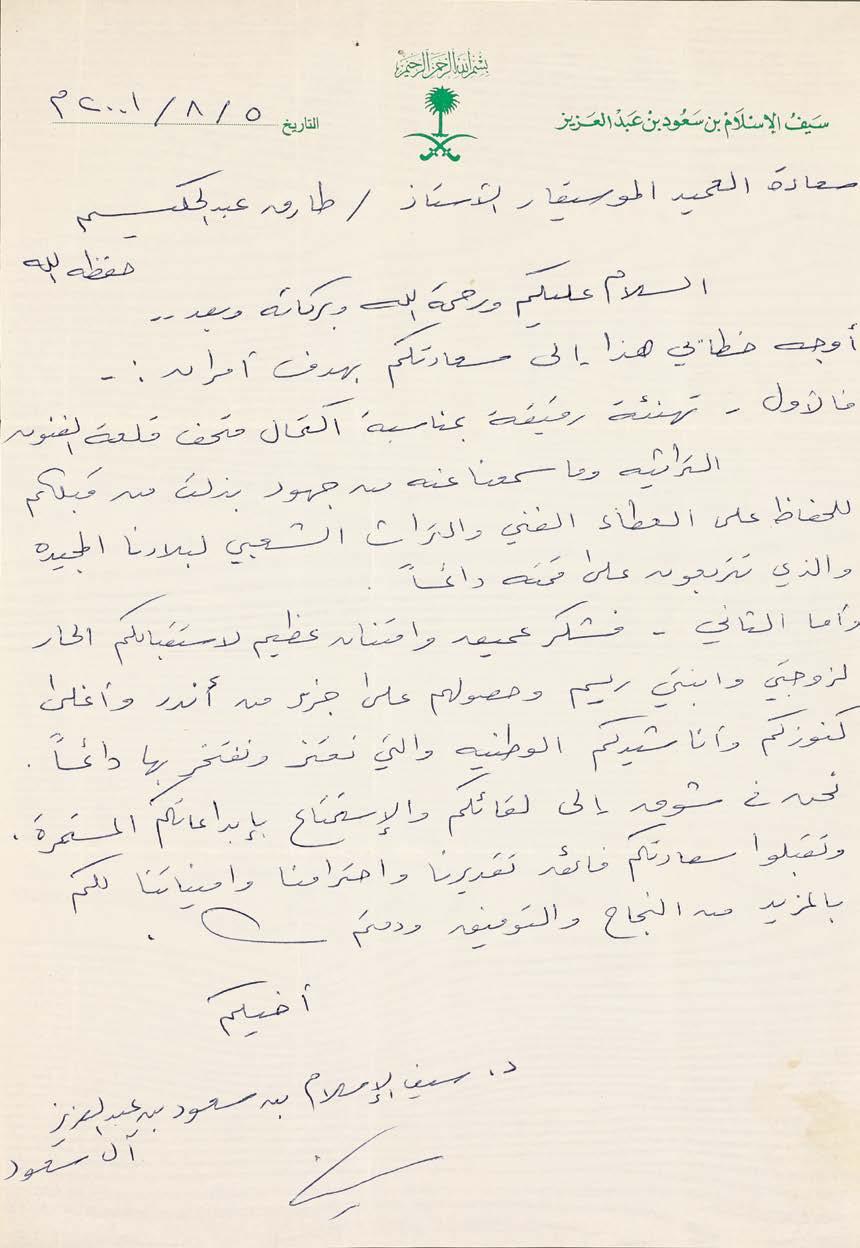 بسم الله الرحمن الرحيم
سَيفُ الإسْلَامْ بن سَعُود بنْ عَبْد العَزيز
التاريخ ٥ / ٨ / ٢٠٠١ م
سعادة العميد الموسيقار الأستاذ / طارق عبدالحكيم
حفظه الله
السلام عليكم ورحمة الله وبركاته وبعد ..
أوجه خطابي هذا إلى سعادتكم بهدف أمران : -
فالأول - تهنئة رقيقة بمناسبة اكتمال متحف قلعة الفنون
التراثيه وما سمعنا عنه من جهود بذلت من قبلكم
للحفاظ على العطاء الفني والتراث الشعبي لبلادنا المجيده
والذي تتربعون على قمته دائماً .
وأما الثاني - فشكر عميق وامتنان عظيم لاستقبالكم الحار
لزوجتي وابنتي ريم وحصولهم على جزء من أندر وأغلى
كنوزكم وأناشيدكم الوطنيه والتي نعتز ونفتخر بها دائماً .
نحن في شوق إلى لقائكم والإستمتاع بإبداعاتكم المستمرة .
وتقبلوا سعادتكم فائق تقديرنا واحترامنا وامنياتنا لكم
بالمزيد من النجاح والتوفيق ودمتم .
أخيكم
د. سيف الإسلام بن سعود بن عبدالعزيز
آل سعود